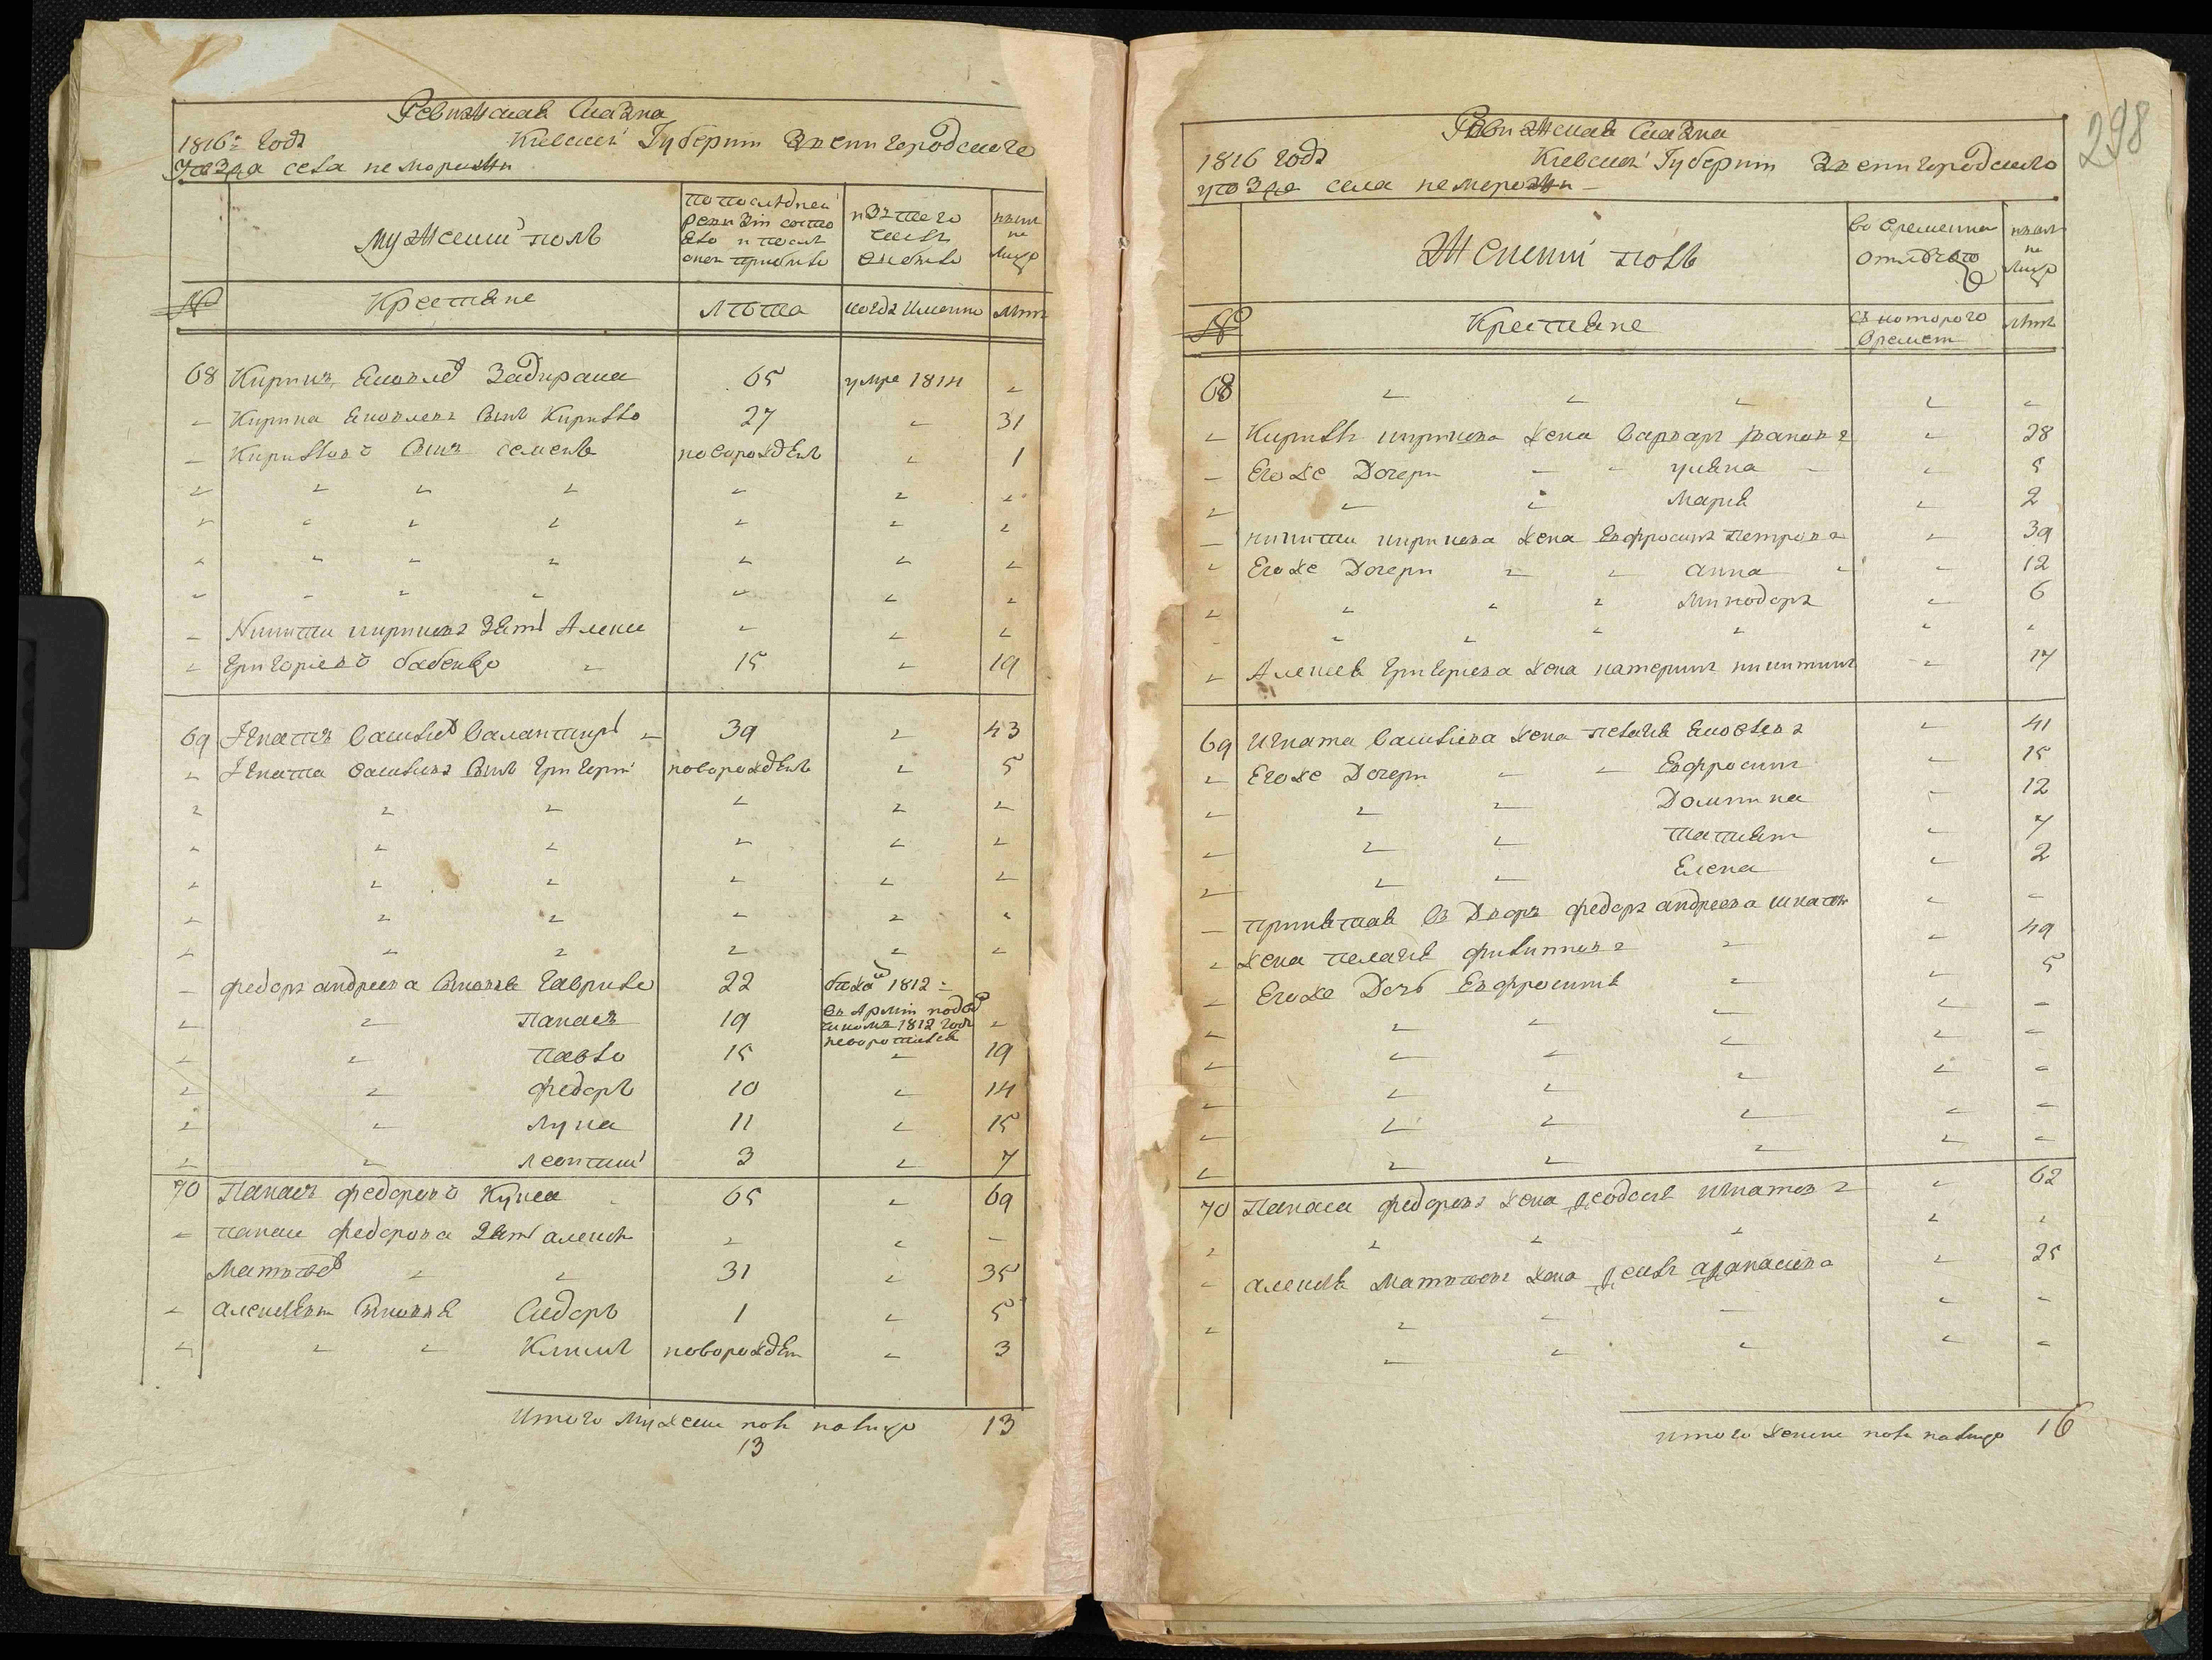 Ревижская Сказка
1816г года Киевской Губернии Звенигородского
Уезда села Неморожи
Мужеский полъ
по последней ревизіи состояло и после оной прибыло
изъ того числа выбыло
ныне на лицо
№ Крестьяне Лета когда именно летъ
68 Кирикъ Яковлев Задирака 65 умре 1814 "
" Кирика Яковлева сынъ Кирило 27 " 31
" Кириловъ сынъ Семенъ новорожденъ " 1
" Никиты Кирикова зять Алексе " " "
" Григориевъ Бабенко " 15 " 19
69 Игнатъ Васильев Салантирь 39 " 43
" Игната Васильева сынъ Григорій новорожденъ " 5
" федора андреева сыновья Гаврило 22 бежал 1812 "
" " Панасъ 19 в Арміи 1812 года "
" " Павло 15 " 19
" " федоръ 10 " 14
" " Лука 11 " 15
" " Леонтий 3 " 7
70 Панасъ федоровъ Куца 65 " 69
" Панаса федорова зять алексей " " "
Матвеев " " 31 " 35
" алексеевы сыновья Сидоръ 1 " 5
" " " Климъ новорожден " 3
Итого мужеска пола налицо 13
13
298
Ревижская Сказка
1816 года Киевской Губернии Звенигородского
уезда села неморожи
Женский полъ
во временной отлучке
ныне на лицо
№ Крестьяне съ которого времени летъ
68 " " " " "
" Кирила кирикова жена Варвара Иванова " 28
" Егоже Дочери " " уляна " " 5
" " " Мария " 2
" никиты кирикова жена Евфросина Петрова " 39
" Егоже Дочери " " анна " " 12
" " " " Минодора " 6
" Алексея Григориева жена катерина никитина " 17
69 Игната Васильева жена пелагия Яковлева " 41
" Егоже Дочери " " Евфросина " 15
" " " Домникиа " 12
" " " Татияна " 7
" " " Елена " 2
" принятая въ Дворъ федора андреева игнатом " "
" жена пелагия филипова " " 49
" Егоже Дочь Евфросиния " " 5
70 Панаса федорова жена феодосия игнатова " 62
" алексея Матвеева жена фекла афанасиева " 25
итого женска пола налицо 16